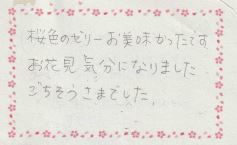 桜色のゼリーお美味かったです
お花見気分になりました
ごちそうさまでした。